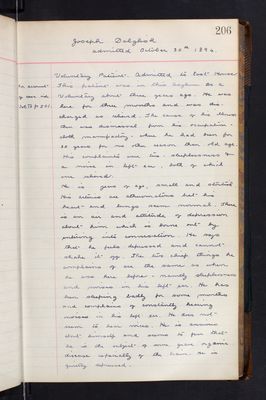 206
Joseph Dalgleish
admitted October 30th 1894.
Voluntary Patient. Admitted to East House
This patient was in this Asylum as a
Voluntary about three years ago. He was
here for three months and was dis-
charged as relieved. The cause of his illness
then was dismissal from his occupation in
cloth manufactory where he had been for
30 years for no other reason than old age.
His complaints were his sleeplessness &
a noise in left ear, both of which
were relieved.
He is years of age, small and
His arteries are atheromatous but his
heart and lungs seem normal. There
is an air and attitude of depression
about him which is borne out by
entering into conversation. He says
that he feels depressed and cannot
shake it off. The two chief things he
complains of are the same as when
he was here before - namely sleeplessness
and noises in his left ear. He has
been sleeping badly for some months
and complains of constantly hearing
noises in his left ear. He does not
seem to hear voices. He is anxious
about himself and seems to fear that
he is the subject of some grave organic
disease especially of the brain. He is
greatly depressed.